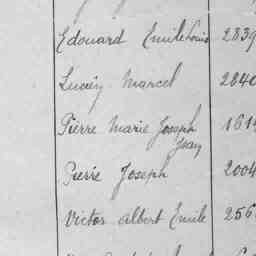 Edouard Emile Louis 2839
Lucien Marcel 2840
Pierre Marie Joseph 1614
Jean
Pierre Joseph 2004
Victor Albert Emile 256